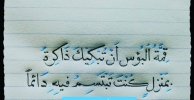 قمة البؤس أن تبكيك ذاكرة
بمنزل كنت تبتسم فيه دائماً